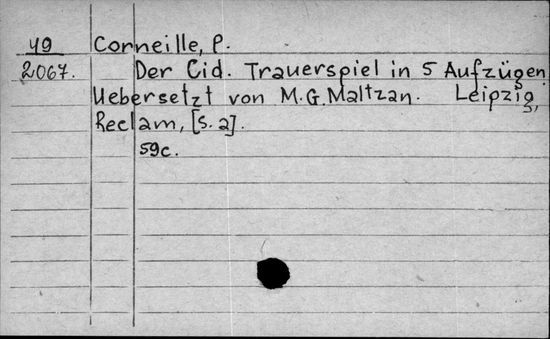 49 Corneille, P.
2067. Der Cid. Trauerspiel in 5 Aufzügen
Uebersetzt von M.G.Maltzan. Leipzig,
Reclam, [s.a].
59c.